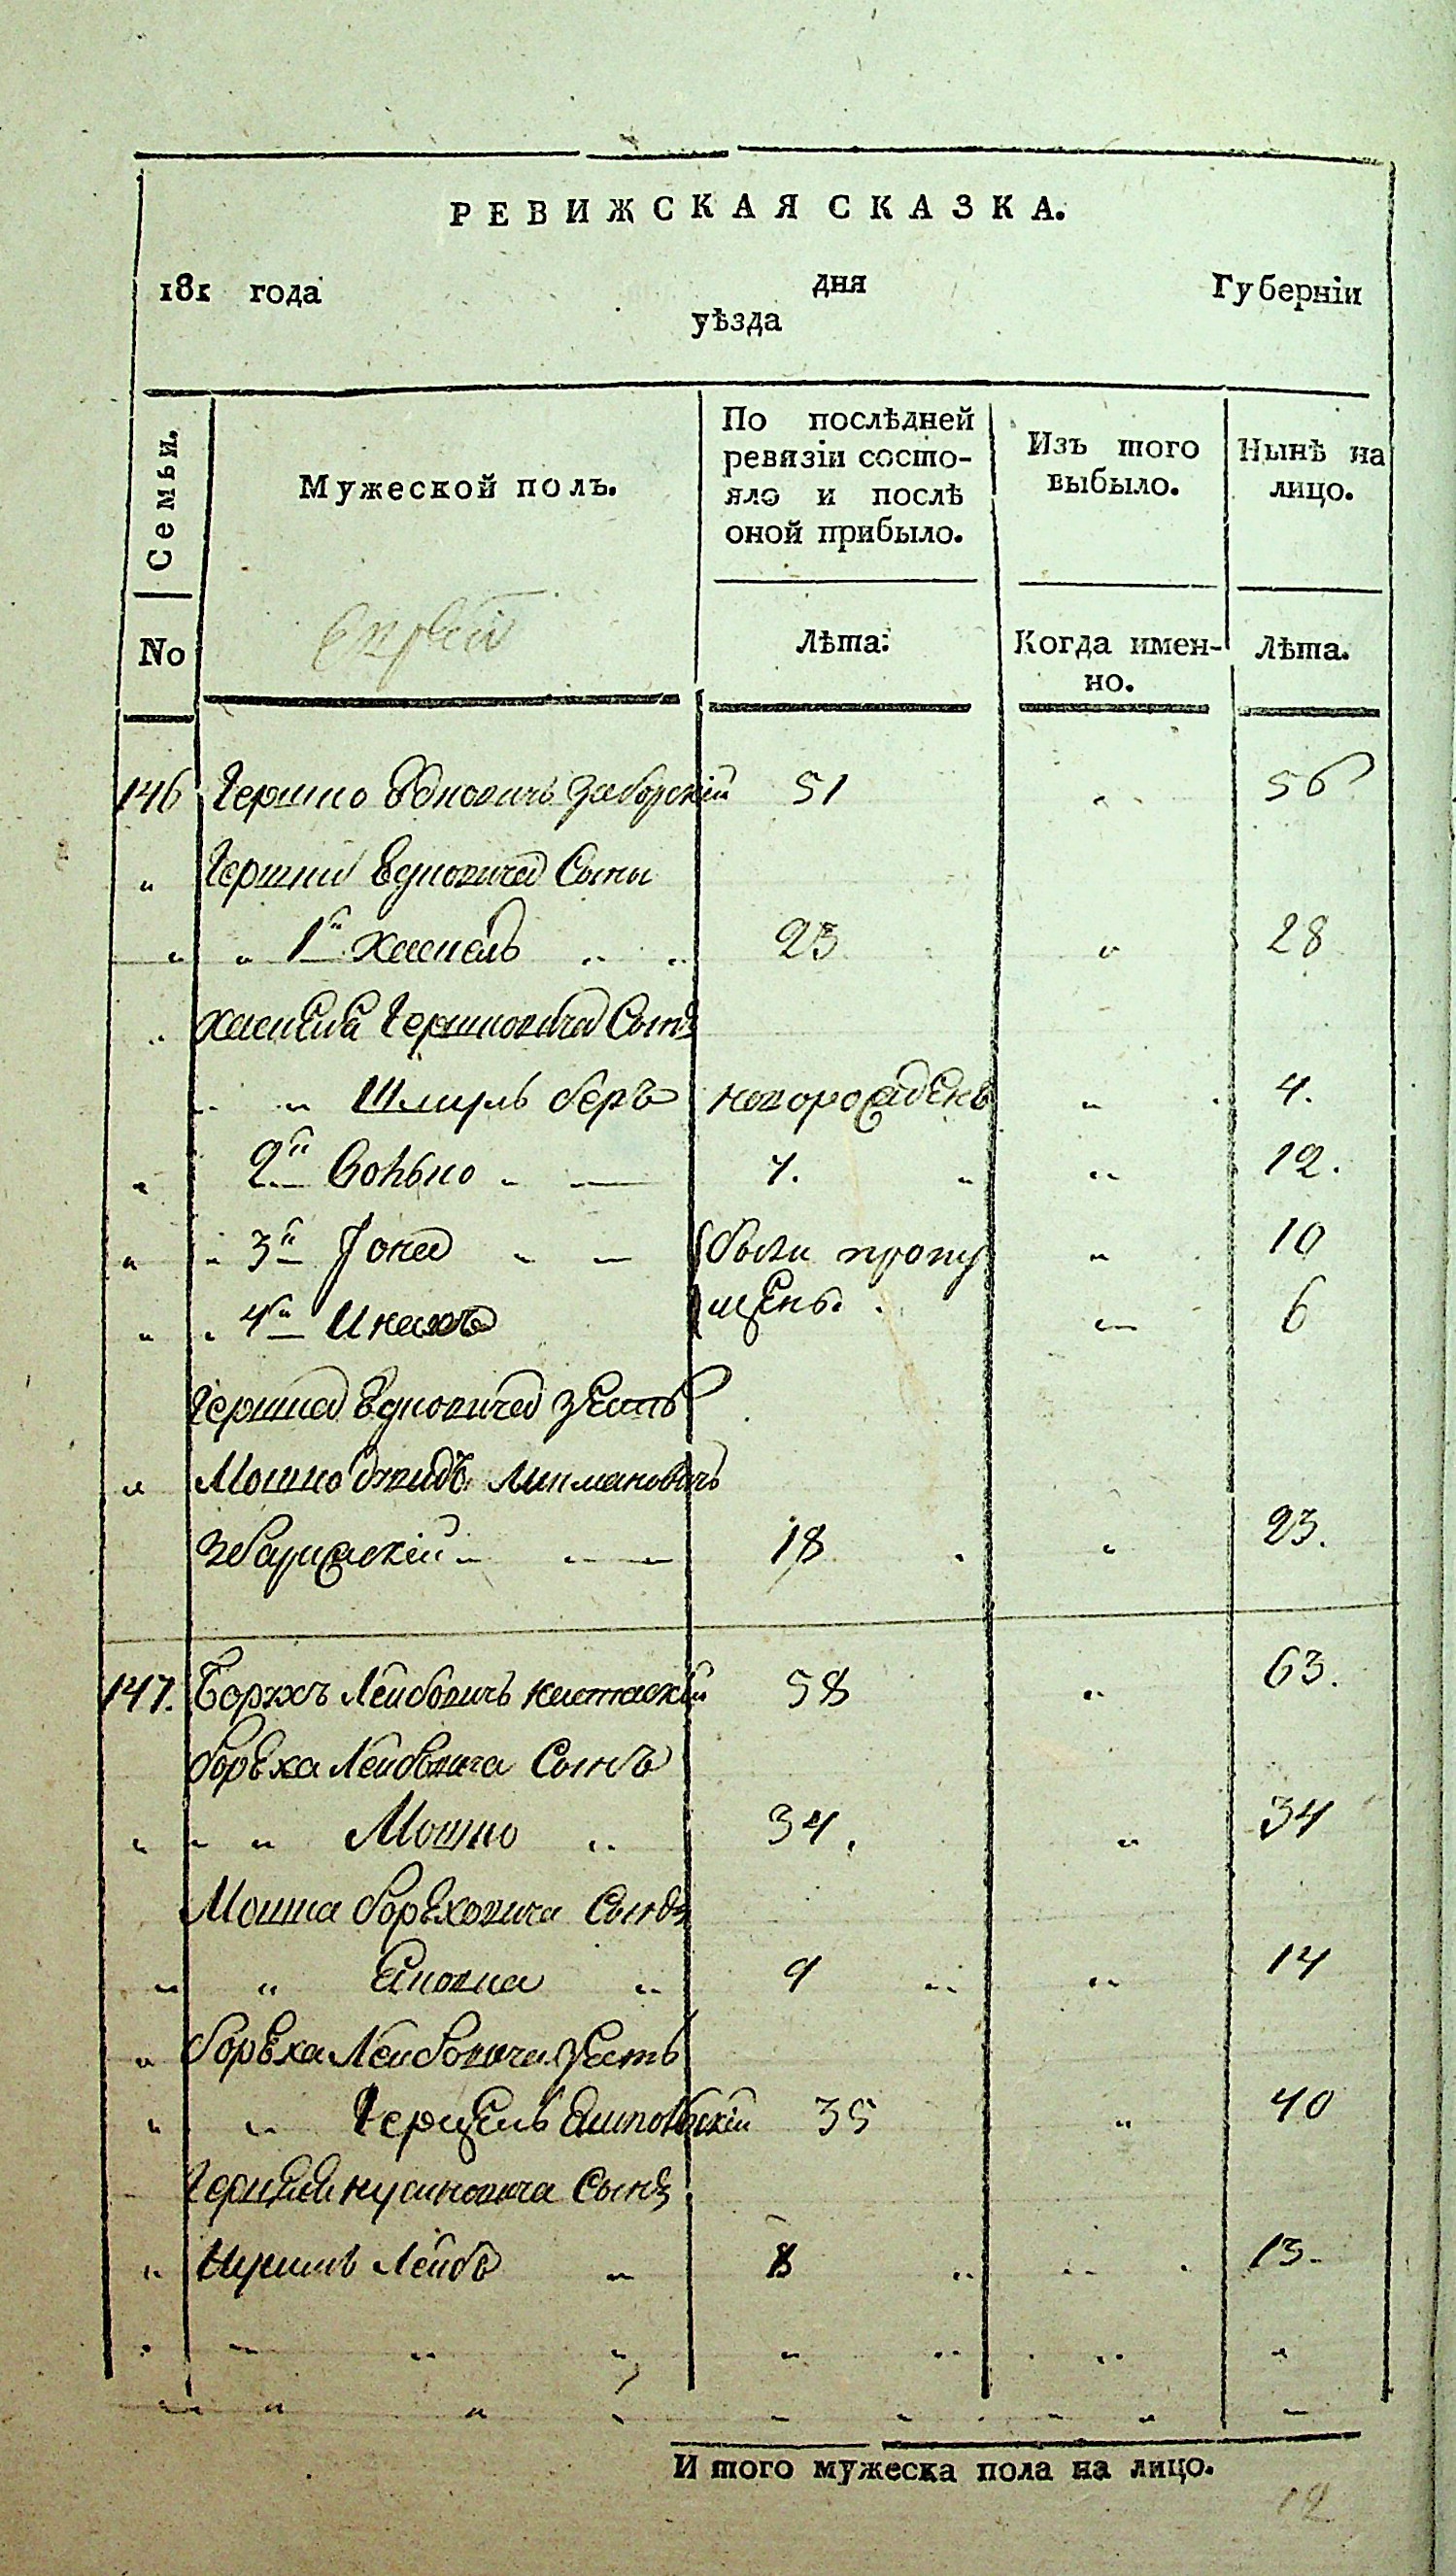 РЕВИЖСКАЯ СКАЗКА.
181 года дня Губерніи
уѣзда
Семьи.
No
Мужеской полъ.
Еврей
По послѣдней
ревизіи состо-
яло и послѣ
оной прибыло.
Лѣта:
Изъ того
выбыло.
Когда имен-
но.
Нынѣ на
лицо.
Лѣта.
146 Гершко Заборскій 51 „ 56
„ Сыны
„ „ 1й 23 „ 28
„ Гершковича Сынъ
„ „ Шмуль беръ новорожденъ „ 4.
„ 2й 7. „ „ 12.
„ „ 3й Іона „ — были пропу „ 10
„ „ 4й щены. „ 6
Гершка зять
„ Мошко Липмановичъ
Збаражскій „ „ — 18 „ „ 23.
147. Борухъ Лейбовичъ 58 „ 63.
борѣха Лейбовича Сынъ
„ „ „ Мошко „ 34. „ 34
Мошка борѣховича Сынъ
„ „ „ 9 „ „ 14
„ борѣха Лейбовича зять
„ „ Герцель 35 „ 40
Нусиновича Сынъ
„ Лейбъ „ 8 „ „ 13.
„ „ „ „ „ „ „ „
„ „ „ „ „ „ „ „ „
И того мужеска пола на лицо.
12